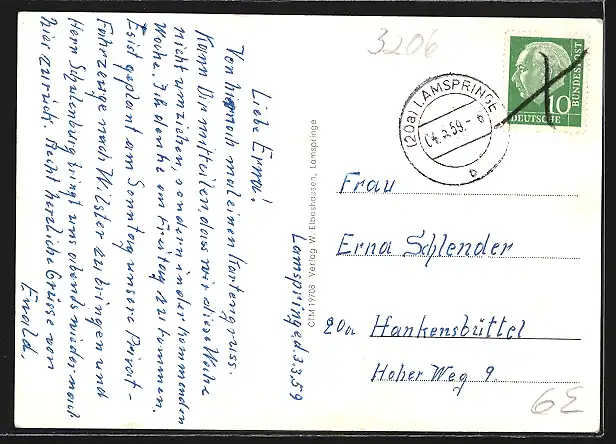 3206
(20a) LAMSPRINGE
-4.3.59.-
b
DEUTSCHE
BUNDESPOST
10
Lamspringe d. 3.3.59
Liebe Erna!
Von hier noch mal einen Kartengruss.
Kann Dir mitteilen, dass wir diese Woche
nicht umziehen, sondern in der kommenden
Woche. Ich denke am Freitag zu kommen.
Es ist geplant am Sonntag unsere Privat-
Fahrzeuge nach W. Ister zu bringen und
Herr Schulenburg bringt uns abends wieder nach
hier zurück. Recht herzliche Grüsse von
Ewald.
CTM 19/08 Verlag W. Elbeshausen, Lamspringe
Frau
Erna Schlender
20a Hankensbüttel
Hoher Weg 9.
6E